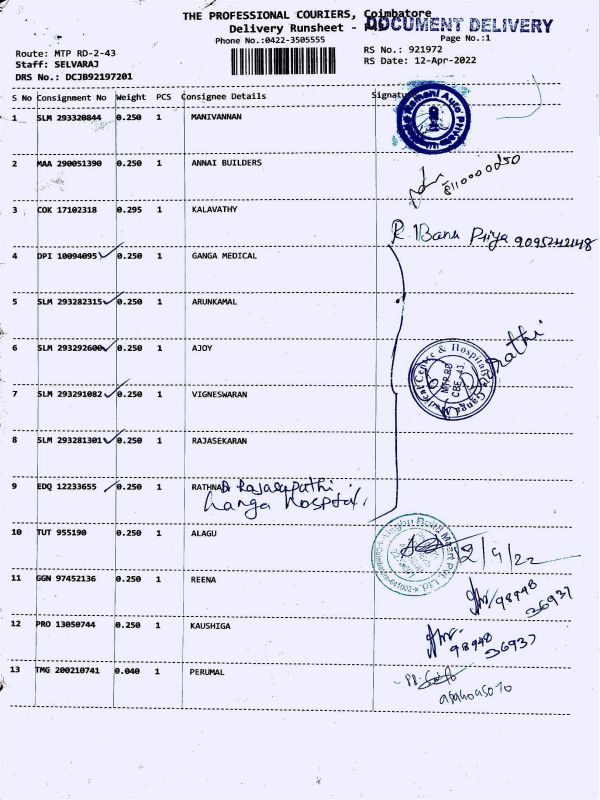 THE PROFESSIONAL COURIERS, Coimbatore
DOCUMENT DELIVERY
Delivery Runsheet -
Phone No.:0422-3505555
Page No.:1
Route: MTP RD-2-43
RS No.: 921972
Staff: SELVARAJ
RS Date: 12-Apr-2022
DRS No.: DCJB92197201
S No Consignment No Weight PCS Consignee Details Signature
1 SLM 293320844 0.250 1 MANIVANNAN
2 MAA 290051390 0.250 1 ANNAI BUILDERS
8110000250
3 COK 17102318 0.295 1 KALAVATHY
R. Banu Priya 9095242148
4 DPI 10094095 0.250 1 GANGA MEDICAL
5 SLM 293282315 0.250 1 ARUNKAMAL
6 SLM 293292600 0.250 1 AJOY
Medical Centre & Hospitals
MTP.RD
CBE-43
Ganga
7 SLM 293291082 0.250 1 VIGNESWARAN
8 SLM 293281301 0.250 1 RAJASEKARAN
9 EDQ 12233655 0.250 1 RATHNA
Dr Rajasapathi
Ganga Hospital
10 TUT 955190 0.250 1 ALAGU
12/4/22
11 GGN 97452136 0.250 1 REENA
98948
36937
12 PRO 13050744 0.250 1 KAUSHIGA
98948
36937
13 TMG 200210741 0.040 1 PERUMAL